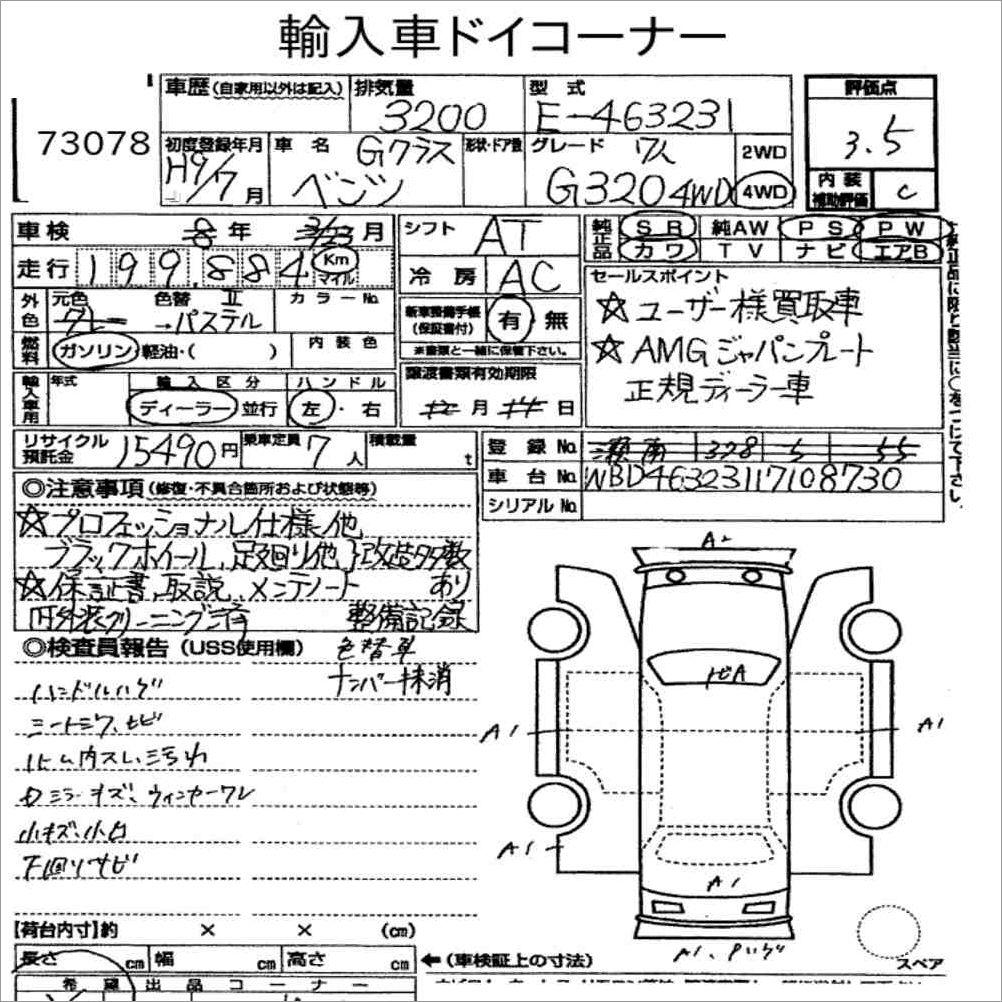 輸入車ドイコーナー
73078
車歴(自家用以外は記入) 排気量 型式 評価点
3200 E-463231 3.5
初度登録年月 車名 形状・ドア数 グレード
H9/7月 ベンツ Gクラス G320 4WD 7人 2WD 4WD
内装補助評価 C
車検 8年 3/23月 シフト AT
純正品 SR 純AW PS PW
カワ TV ナビ エアB
走行 199,884 Km マイル 冷房 AC
外色 元色 色替 カラーNo.
グレー →パステル
新車整備手帳(保証書付) 有 無
※書類と一緒に保管下さい。
燃料 ガソリン 軽油・( ) 内装色
セールスポイント
☆ユーザー様買取車
☆AMGジャパンプレート
正規ディーラー車
輸入車用 年式 輸入区分 ハンドル
ディーラー 並行 左・右
譲渡書類有効期限
月 日
リサイクル預託金 15490円 乗車定員 7人 積載量 t
登録No. 328
車台No. WBD46323117108730
シリアルNo.
◎注意事項(修復・不具合箇所および状態等)
☆プロフェッショナル仕様他
ブラックホイール、足廻り他改造多数
☆保証書、取説、メンテノート あり
内外装クリーニング済 整備記録
◎検査員報告(USS使用欄) 色替車
ハンドルハゲ ナンバー抹消
シートシワ、ヒビ
内スレ、汚れ
ミラーキズ、ウィンカーワレ
小キズ、小凹
下回りサビ
A1
トビA
A1 A1
A1
A1
A1、Pハゲ
スペア
【荷台内寸】約 × × (cm)
長さ cm 幅 cm 高さ cm ←(車検証上の寸法)
希望出品コーナー